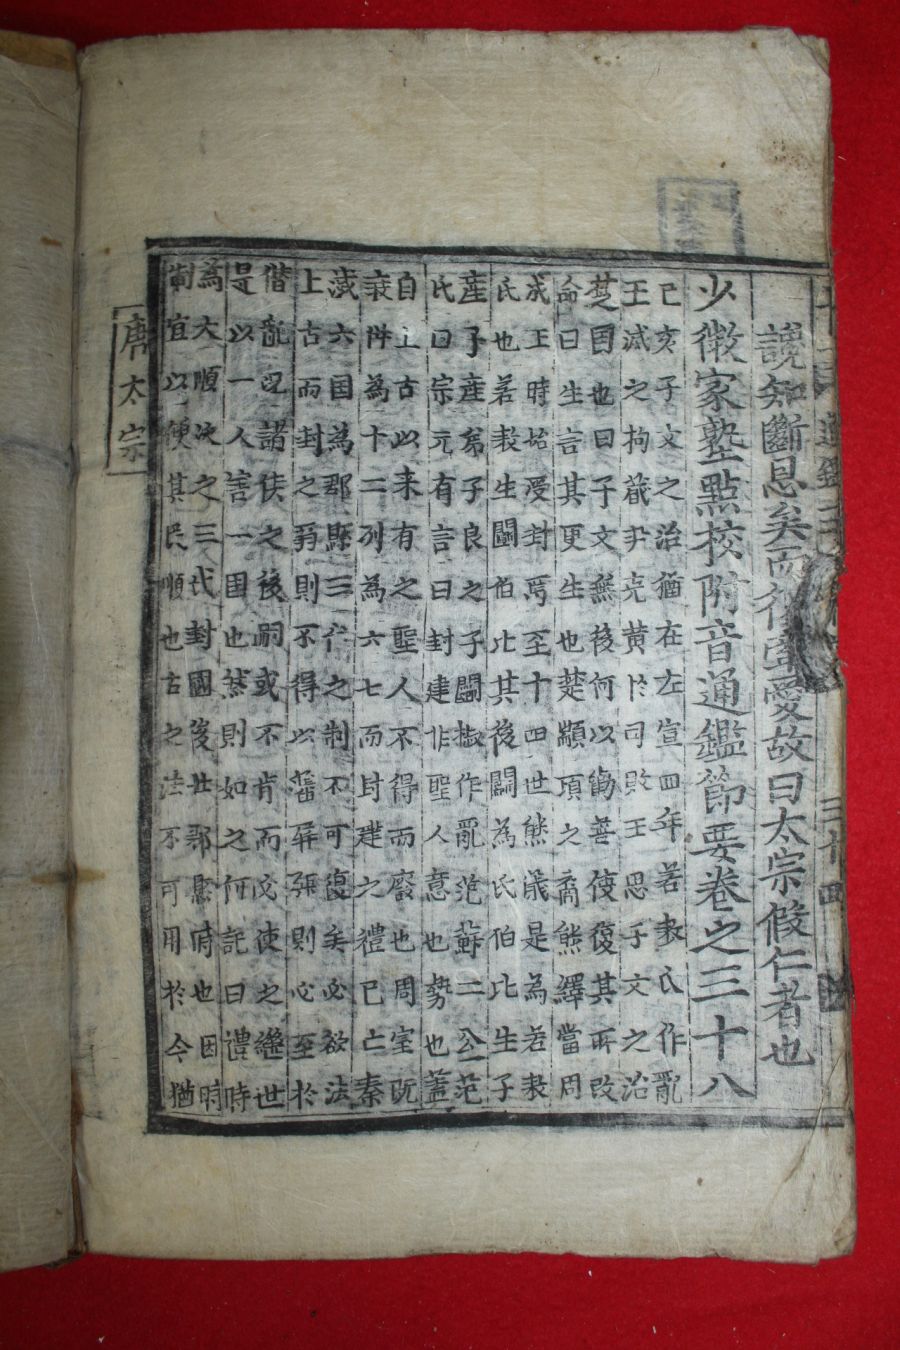 說知斷恩矣而愛故曰太宗假仁者也
少微家塾點校附音通鑑節要卷之三十八
己亥子文之治猶在左宣四年若敖氏作亂
王滅之拘箴尹克黃於司敗王思子文之治
楚國也曰子文無後何以勸善使復其所改
命曰生言其更生也楚顓頊之裔熊繹當周
成王時始受封焉至十四世熊儀是為若敖
氏也若敖生鬪伯比其後鬪為氏伯比生子
産子産弟子良之子鬪椒作亂范蘇二公范
氏曰宗元有言曰封建非聖人意也勢也蓋
自上古以来有之聖人不得而廢也周室旣
衰倂為十二列為六七而封建之禮已亡秦
滅六国為郡縣三代之制不可復矣必欲法
上古而封之弱則不得以藩屏强則必至於
僭亂况諸侯之後嗣或不肖而又使之繼世
是以一人害一国也然則如之何記曰禮時
為大順次之三代封國後世郡縣府也因時
制宜以便其民順也古之法不可用於今猶
唐太宗